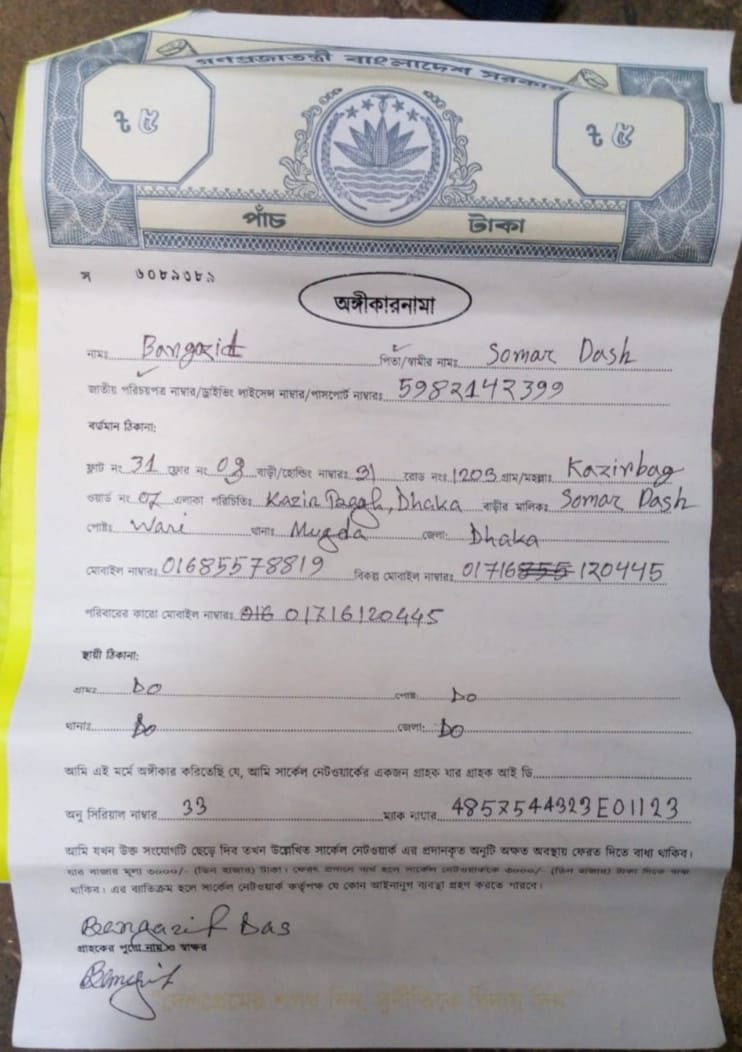 গণপ্রজাতন্ত্রী বাংলাদেশ সরকার
৳ ৫ ৳ ৫
পাঁচ টাকা
স ৬০৮৯৩৮৯
অঙ্গীকারনামা
নামঃ পিতা/স্বামীর নামঃ Somar Dash
জাতীয় পরিচয়পত্র নাম্বার/ড্রাইভিং লাইসেন্স নাম্বার/পাসপোর্ট নাম্বারঃ 5982142399
বর্তমান ঠিকানা:
ফ্লাট নং 31 ফ্লোর নং 03 বাড়ী/হোল্ডিং নাম্বারঃ 31 রোড নংঃ 1203 গ্রাম/মহল্লাঃ Kazirbag
ওয়ার্ড নং 07 এলাকা পরিচিতিঃ Kazir Bagh, Dhaka বাড়ীর মালিকঃ Somar Dash
পোষ্টঃ Wari থানাঃ Mugda জেলা: Dhaka
মোবাইল নাম্বারঃ 01685578819 বিকল্প মোবাইল নাম্বারঃ 01716 120445
পরিবারের কারো মোবাইল নাম্বারঃ 016 01716120445
স্থায়ী ঠিকানা:
গ্রামঃ Do পোষ্ট: Do
থানাঃ Do জেলা: Do
আমি এই মর্মে অঙ্গীকার করিতেছি যে, আমি সার্কেল নেটওয়ার্কের একজন গ্রাহক যার গ্রাহক আই ডি
অনু সিরিয়াল নাম্বার 33 ম্যাক নাম্বার 4857544323E01123
আমি যখন উক্ত সংযোগটি ছেড়ে দিব তখন উল্লেখিত সার্কেল নেটওয়ার্ক এর প্রদানকৃত অনুটি অক্ষত অবস্থায় ফেরত দিতে বাধ্য থাকিব।
যার বাজার মূল্য ৩০০০/- (তিন হাজার) টাকা। ফেরৎ প্রদানে ব্যর্থ হলে সার্কেল নেটওয়ার্ককে ৩০০০/- (তিন হাজার) টাকা দিতে বাধ্য
থাকিব। এর ব্যতিক্রম হলে সার্কেল নেটওয়ার্ক কর্তৃপক্ষ যে কোন আইনানুগ ব্যবস্থা গ্রহণ করতে পারবে।
গ্রাহকের পুরো নাম ও স্বাক্ষর
"দেশপ্রেমের শপথ নিন, দুর্নীতিকে বিদায় দিন"